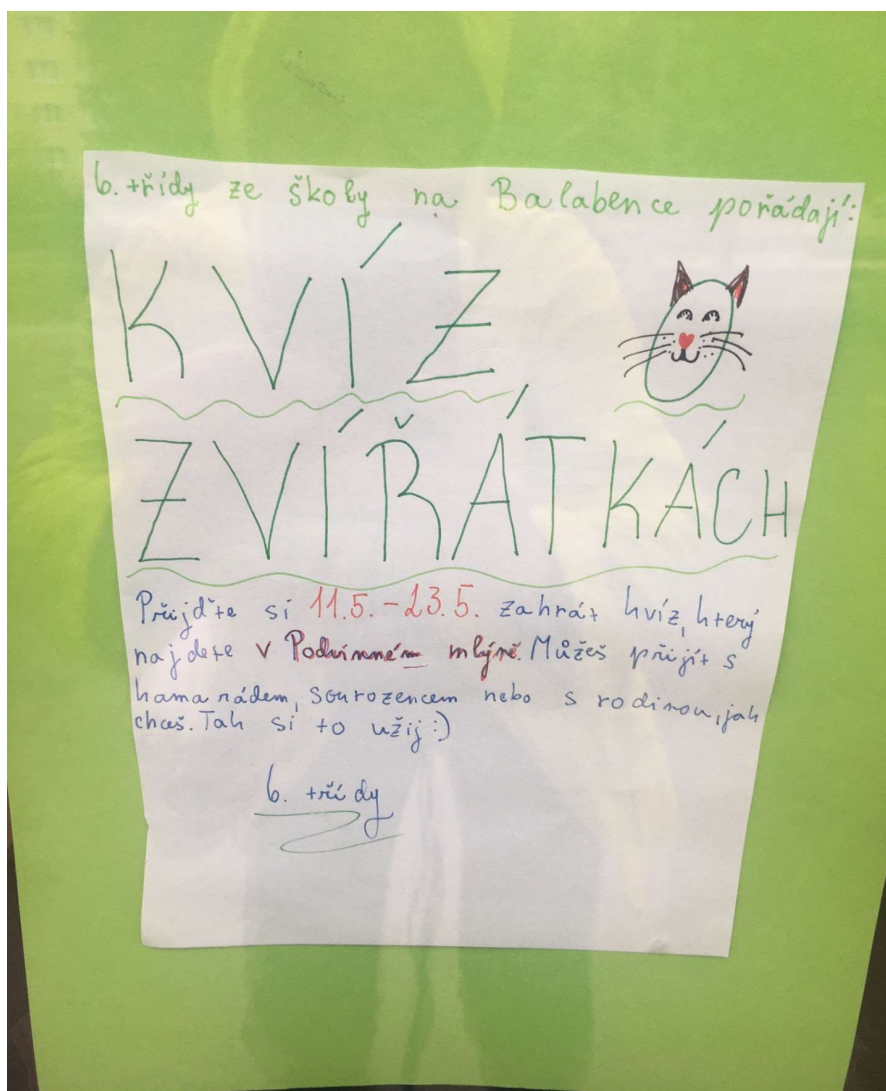 6. třídy ze školy na Balabence pořádají:
KVÍZ
ZVÍŘÁTKÁCH
Přijďte si 11.5.-23.5. zahrát kvíz, který
najdete v Podvinném mlýně. Můžeš přijít s
kamarádem, sourozencem nebo s rodinou, jak
chceš. Tak si to užij :)
6. třídy